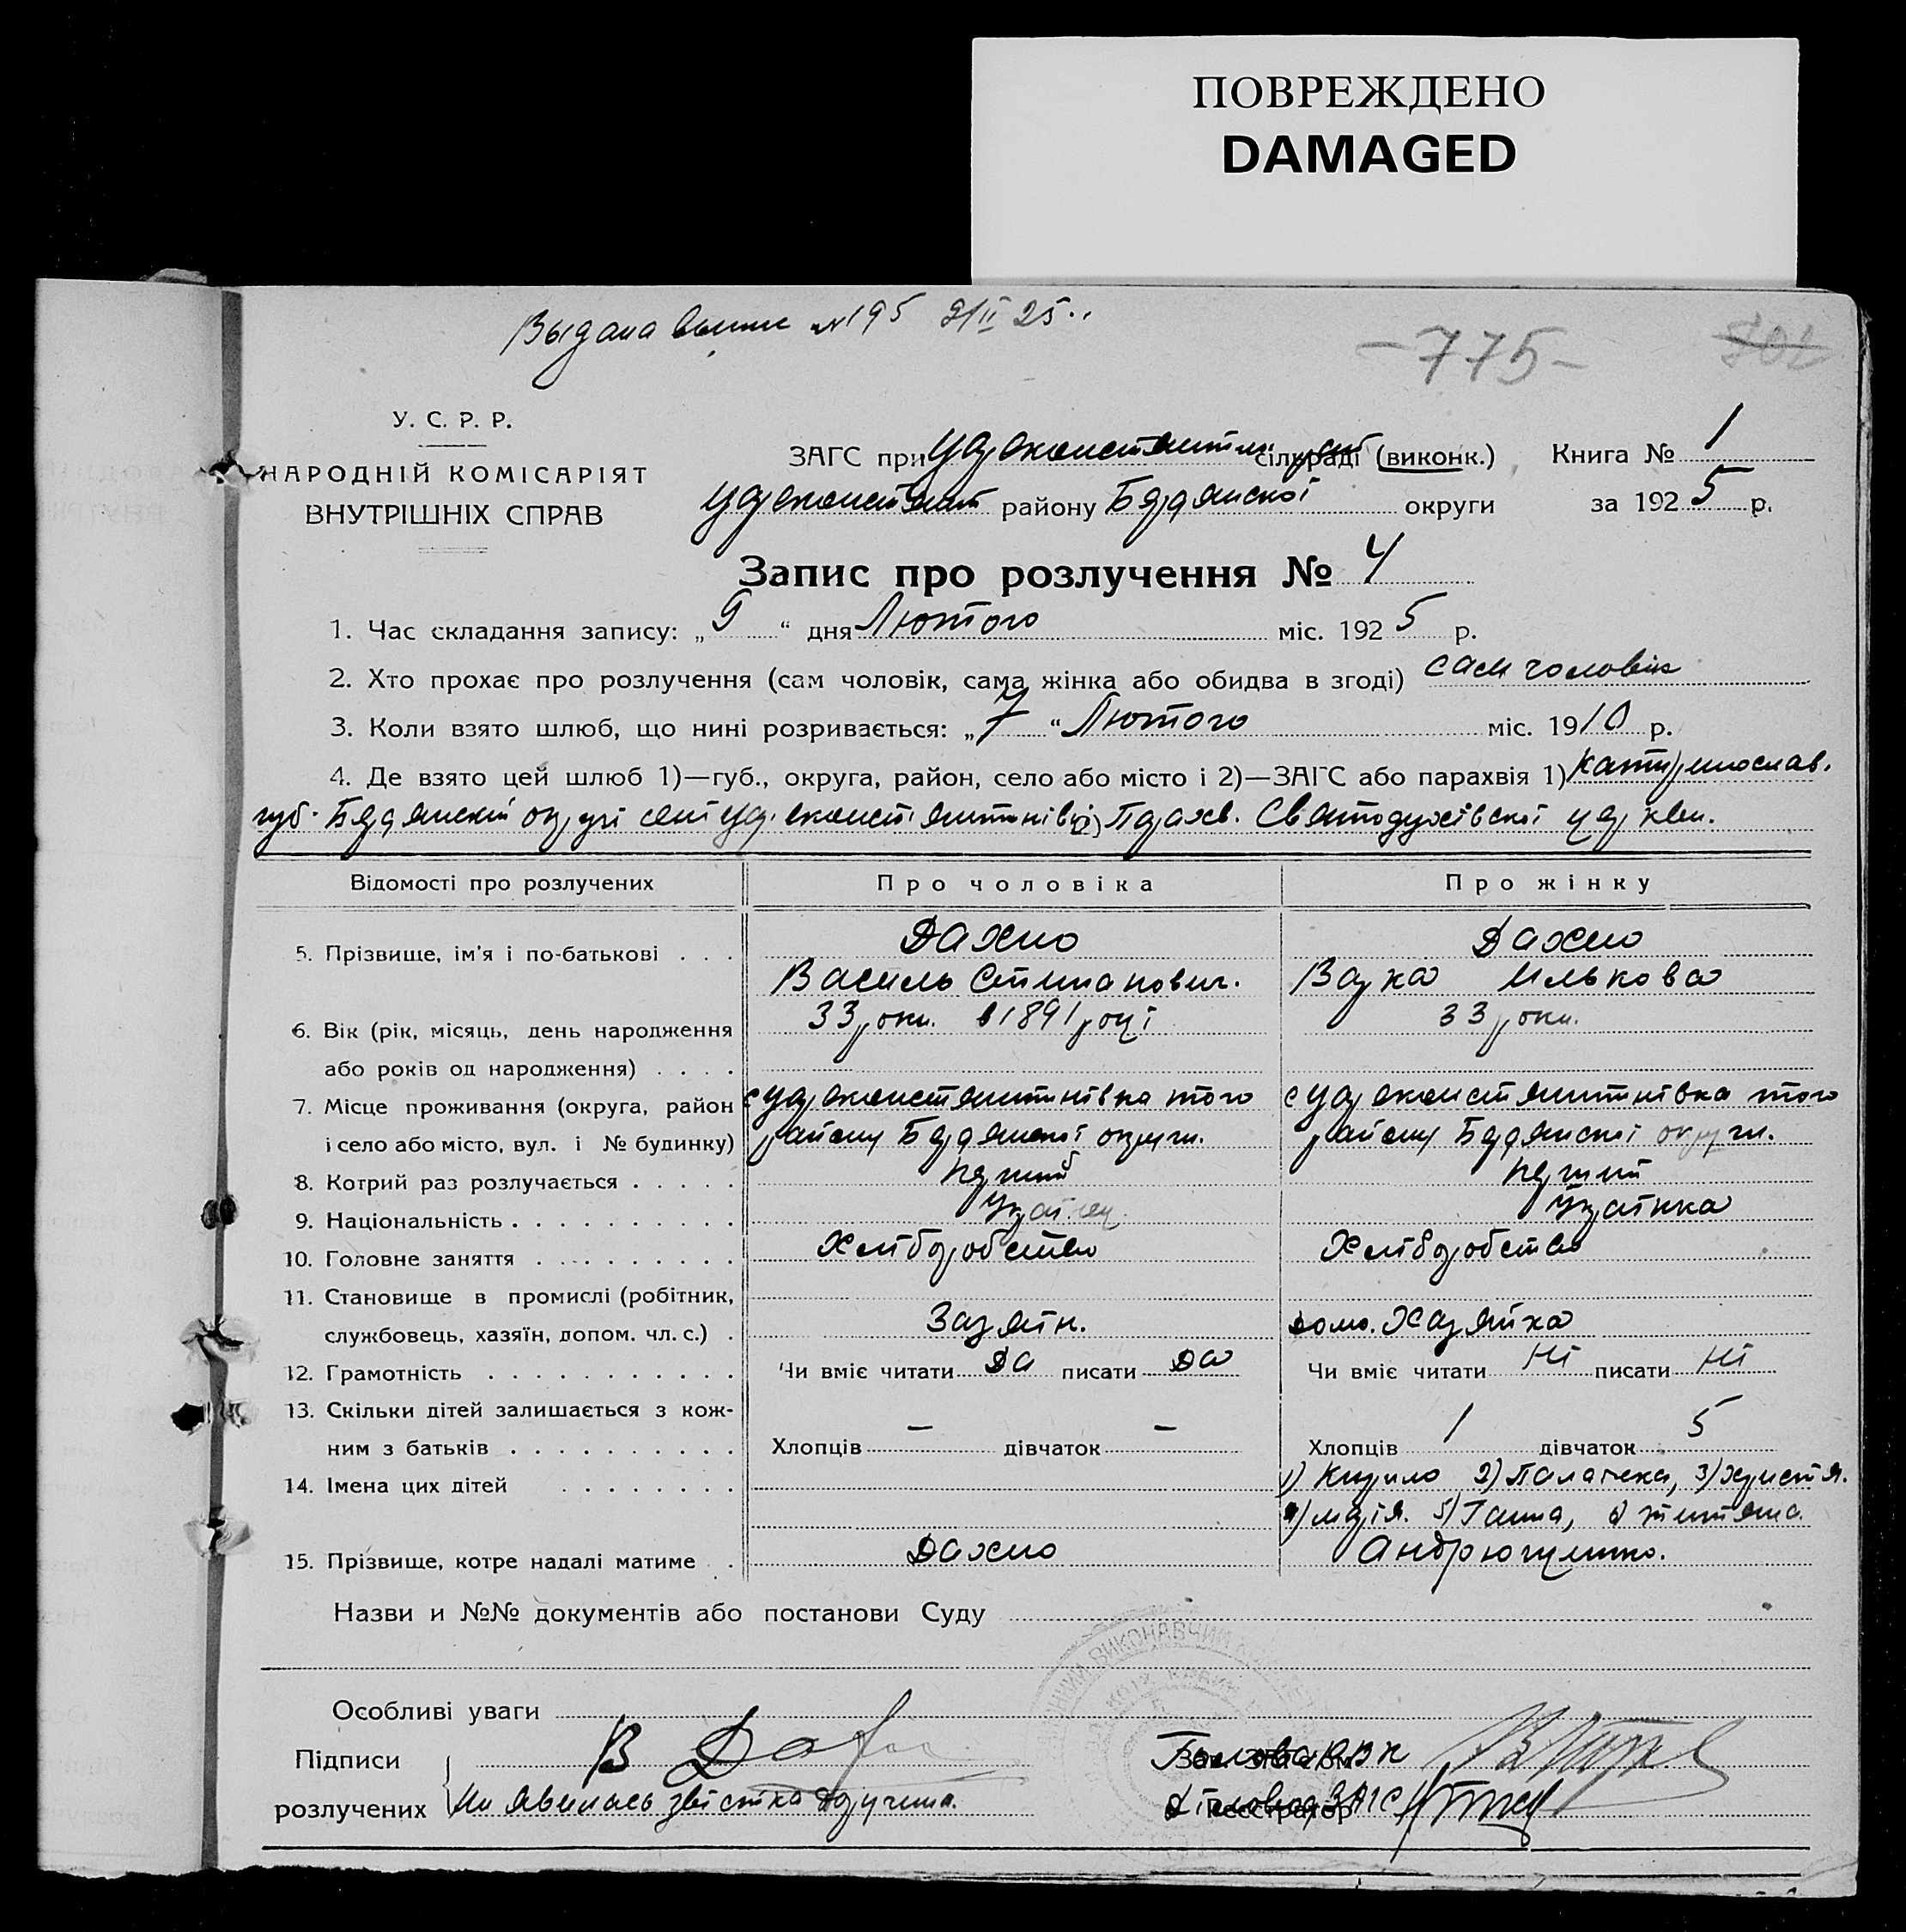 ПОВРЕЖДЕНО
DAMAGED
Выдана выпис №195 9/II 25..
-775-
У. С. Р. Р.
НАРОДНІЙ КОМІСАРІЯТ
ВНУТРІШНІХ СПРАВ
ЗАГС при Цареконстянтин. сільраді (виконк.) Книга № 1
Цареконстянт району Бердянскоі округи за 1925 р.
Запис про розлучення № 4
1. Час складання запису: „9“ дня Лютого міс. 1925 р.
2. Хто прохає про розлучення (сам чоловік, сама жінка або обидва в згоді) сам чоловік
3. Коли взято шлюб, що нині розривається: „7“ Лютого міс. 1910 р.
4. Де взято цей шлюб 1)—губ., округа, район, село або місто і 2)—ЗАГС або парахвія 1) Катеринослав.
губ. Бердянскій окрузі 2) Парахв. Святодухівскоі церкви.
Відомості про розлучених Про чоловіка Про жінку
5. Прізвище, ім'я і по-батькові . . . Дахно Дахно
Василь Степанович. Варка Илькова
6. Вік (рік, місяць, день народження 33 роки. в 1891 році 33 роки.
або років од народження) . . . .
7. Місце проживання (округа, район с Цареконстянтинівка того с Цареконстянтинівка того
і село або місто, вул. і № будинку) району Бердянскоі округи. району Бердянскоі округи.
8. Котрий раз розлучається . . . . . перший перший
9. Національність . . . . . . . . . . Украінец. Украінка
10. Головне заняття . . . . . . . . . Хліборобство Хліборобство
11. Становище в промислі (робітник,
службовець, хазяїн, допом. чл. с.) . Хазяін. домо. Хазяйка
12. Грамотність . . . . . . . . . . . Чи вміє читати Да писати Да Чи вміє читати Ні писати Ні
13. Скільки дітей залишається з кож- 1 5
ним з батьків . . . . . . . . . . Хлопців — дівчаток — Хлопців дівчаток
14. Імена цих дітей . . . . . . . . 1) Кирило 2) Палагека, 3) Христя.
4) Марія. 5) Ганна, 6) Тетяна.
15. Прізвище, котре надалі матиме . Дахно Андрющенко.
Назви и №№ документів або постанови Суду
Особливі уваги
Підписи В Дах Голова РВК
розлучених Не явилась звістка доручена. Діловод ЗАГС
Реєстратор